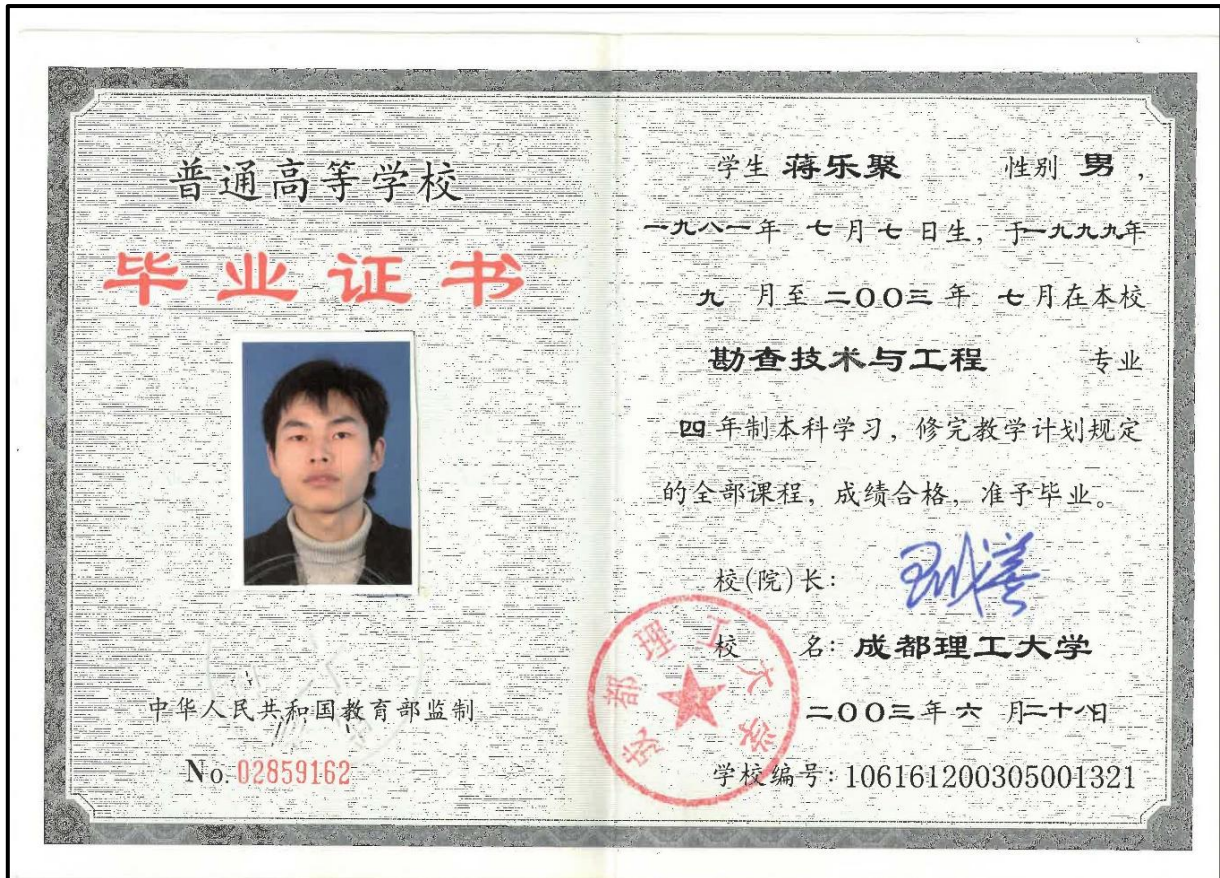 普通高等学校
毕业证书
中华人民共和国教育部监制
No. 02859162
学生 蒋乐聚 性别 男，
一九八一年 七月七日生，于一九九九年
九 月至 二〇〇三 年 七月在本校
勘查技术与工程 专业
四 年制本科学习，修完教学计划规定
的全部课程，成绩合格，准予毕业。
校(院)长：
校 名：成都理工大学
二〇〇三年六 月二十八日
学校编号：106161200305001321
成都理工大学